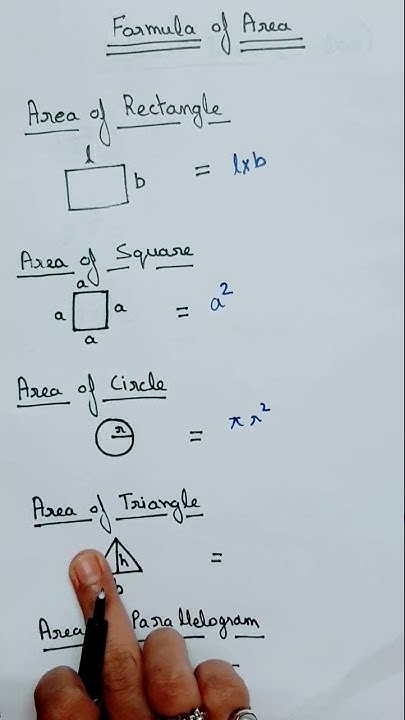 Formula of Area
Area of Rectangle
l
b
= l×b
Area of Square
a
a a
a
= a²
Area of Circle
r
= πr²
Area of Triangle
h
b
=
Area Parallelogram